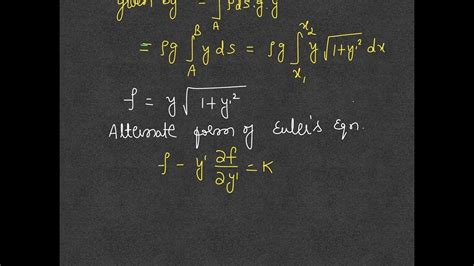 given by = ∫_A ρds.g.y
= ρg ∫_A^B y ds = ρg ∫_{x_1}^{x_2} y √(1+y'^2) dx
f = y √(1+y'^2)
Alternate form of Euler's Eqn.
f - y' ∂f/∂y' = K